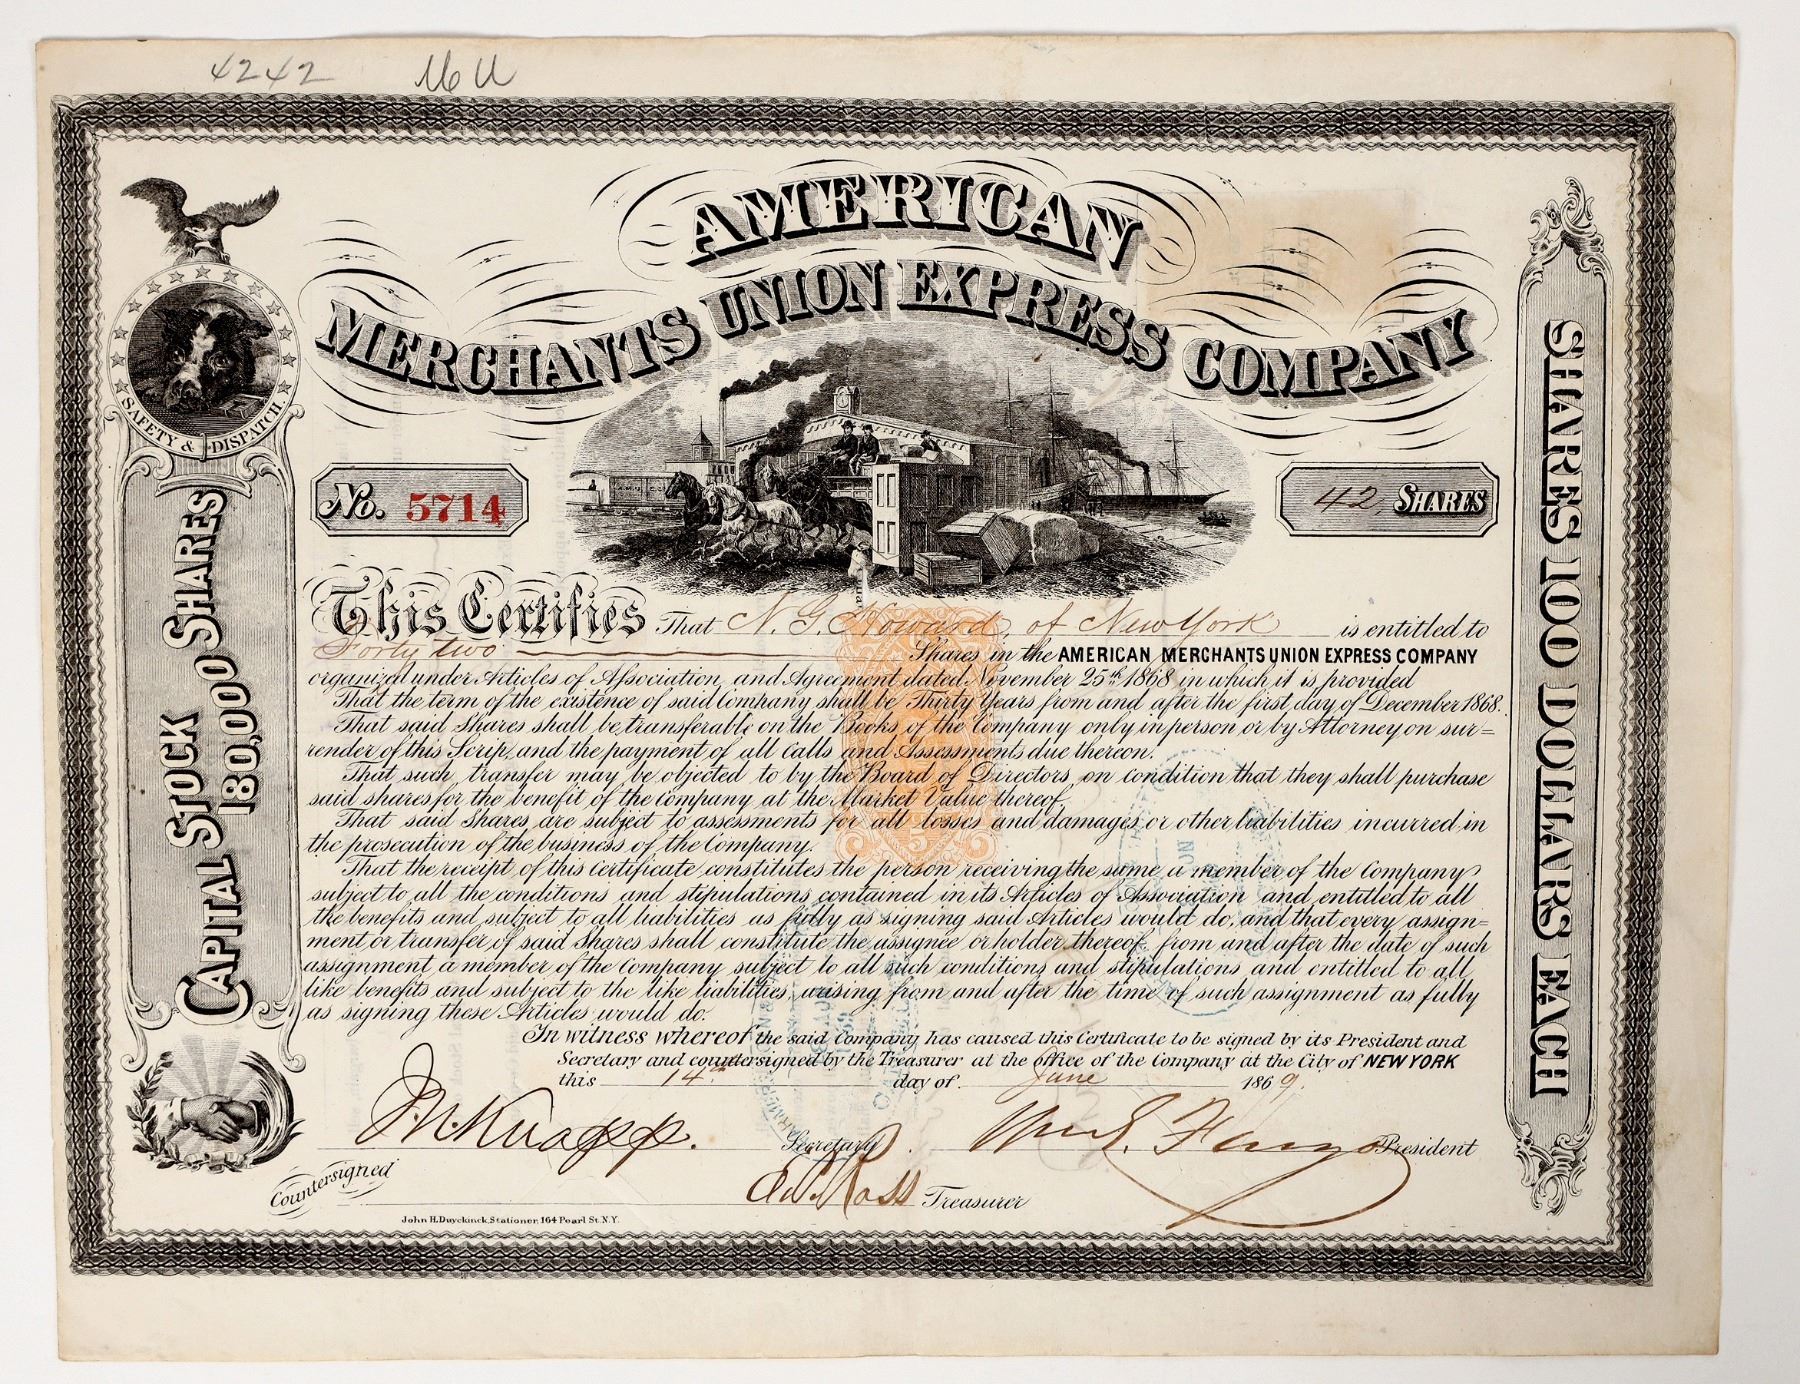 4242
AMERICAN
MERCHANTS UNION EXPRESS COMPANY
SAFETY & DISPATCH.
No. 5714
42, SHARES
CAPITAL STOCK 180,000 SHARES
SHARES 100 DOLLARS EACH
This Certifies That N. G. Howard, of New York is entitled to
Forty two Shares in the AMERICAN MERCHANTS UNION EXPRESS COMPANY
organized under Articles of Association, and Agreement dated November 25th 1868 in which it is provided
That the term of the existence of said Company shall be Thirty Years from and after the first day of December 1868.
That said Shares shall be transferable on the Books of the Company only in person or by Attorney on sur=
render of this Scrip, and the payment of all Calls and Assessments due thereon.
That such transfer may be objected to by the Board of Directors on condition that they shall purchase
said shares for the benefit of the Company at the Market Value thereof.
That said Shares are subject to assessments for all losses and damages or other liabilities incurred in
the prosecution of the business of the Company.
That the receipt of this Certificate constitutes the person receiving the same, a member of the Company
subject to all the conditions and stipulations contained in its Articles of Association and entitled to all
the benefits and subject to all liabilities as fully as signing said Articles would do, and that every assign=
ment or transfer of said Shares shall constitute the assignee or holder thereof, from and after the date of such
assignment, a member of the Company subject to all such conditions and stipulations, and entitled to all
like benefits and subject to the like liabilities, arising from and after the time of such assignment as fully
as signing these Articles would do.
In witness whereof the said Company has caused this Certificate to be signed by its President and
Secretary and countersigned by the Treasurer at the Office of the Company at the City of NEW YORK
this 14th day of June 1869.
J. N. Knapp. Secretary. Wm G. Fargo President
Countersigned
Treasurer
John H. Duyckinck, Stationer, 164 Pearl St. N.Y.